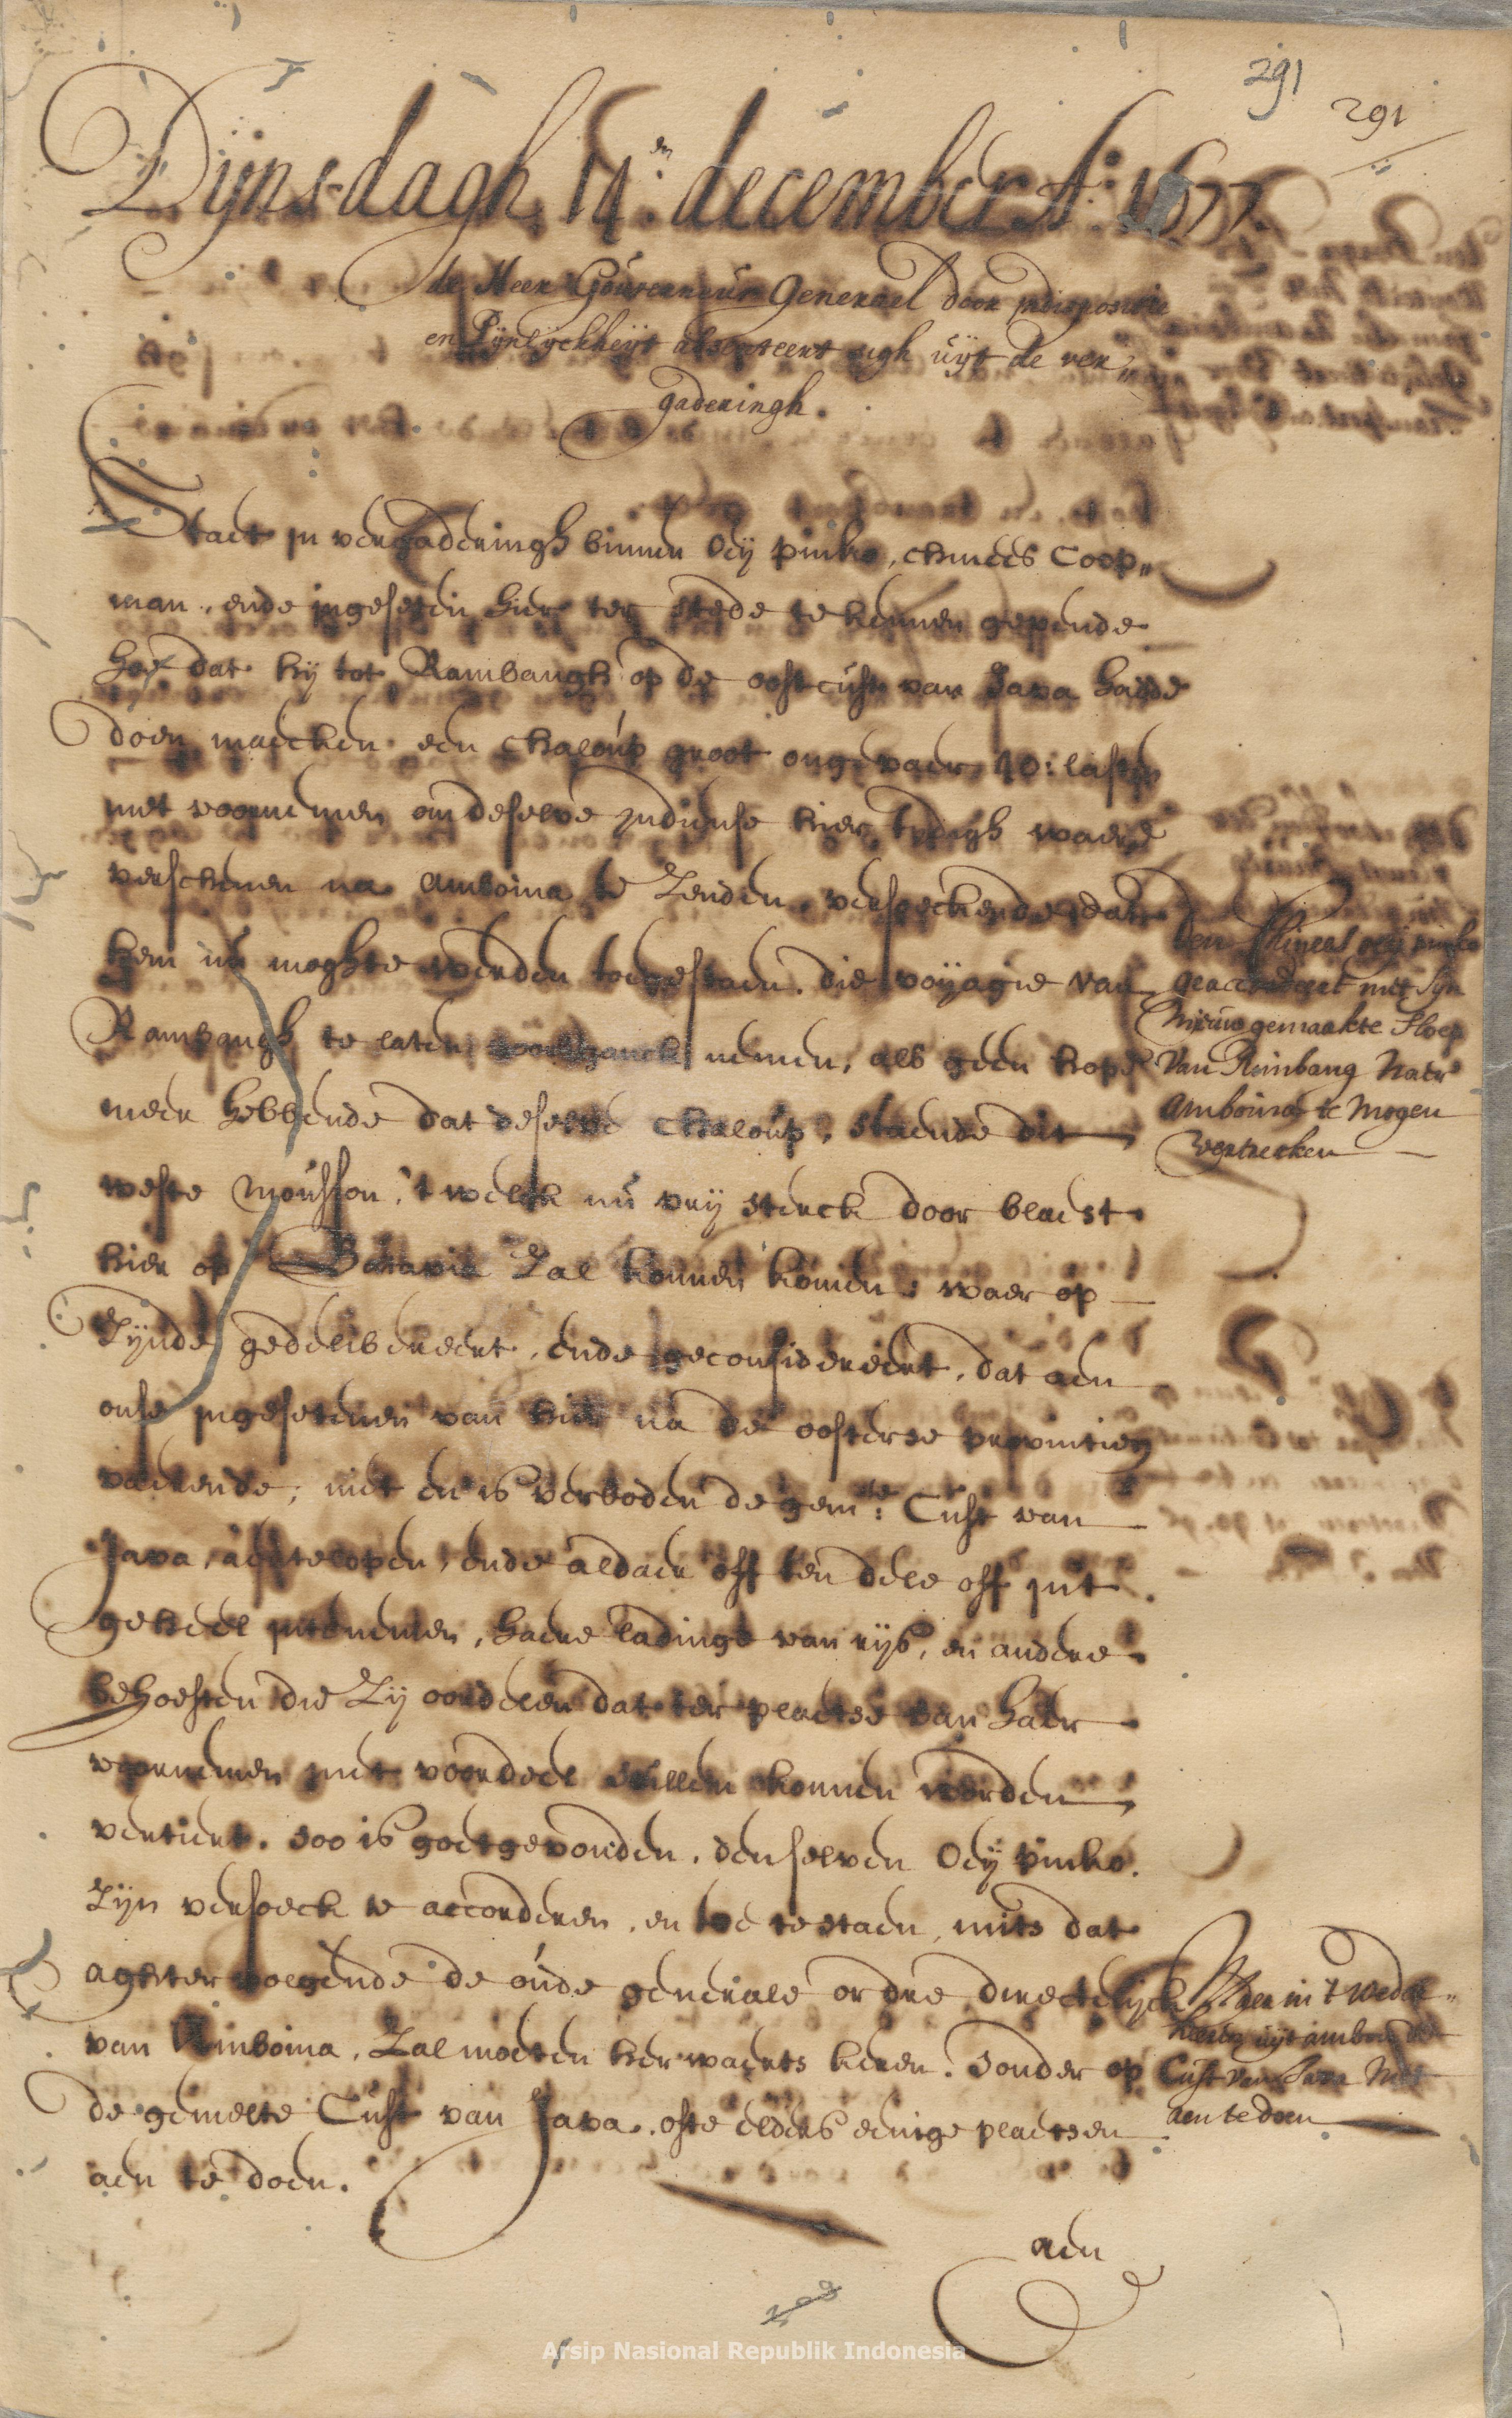 291
291
Dijnsdagh 14en december Ao: 1677
de Heer Gouverneur Generael door indispositie
en Pijnlijckheijt absenteert sigh uijt de ver„
gaderingh.
Staet in vergaderingh binnen Oeij pinko, chinees Coop„
man, ende ingeseten hier ter stede te kennen gevende
hoe dat hij tot Rambangh op de oostcust van Java hadde
doen maecken een chaloup groot ongevaer 10: lasten
met voornemen om deselve indiense hier tydigh waere
verschenen na Amboina te Zenden, versoeckende dat
hem nu moghte werden toegestaen, die voijagie van
Rambangh te laten voortganck nemen, als geen hope
meer hebbende dat deselve chaloup, staende dit
weste mousson, 't welck nu vrij sterck door blaest
hier op Batavia Zal konnen komen, waer op
Zijnde gedelibereert, ende geconsidereert, dat aen
onse ingesetenen van hier na de oosterse provintien
varende, niet en is verboden de gemte: Cust van
Java, aen te lopen, ende aldaer off ten dele off int
geheel in te nemen, haere ladinge van rijs, en andere
behoeften die Zij oordelen dat ter plaetse van haer
voornemen met voordeel sullen konnen werden
vertiert. soo is goetgevonden, denselven Oeij pinko.
Zijn versoeck te accorderen, en toe te staen, mits dat
aghter volgende de oude generale ordre directelijck
van Amboina, Zal moeten herwaerts keren. sonder op
de gemelte Cust van Java, ofte elders eenige plaetsen
aen te doen.
den Chinees oeij pinko
geaccordeert met sijn
nieuwgemaakte Sloep
van Rimbang naer
amboina te mogen
vertrecken
Maer in 't weder„
keeren uijt amboina de
Cust van Java niet
aen te doen
aen
Arsip Nasional Republik Indonesia